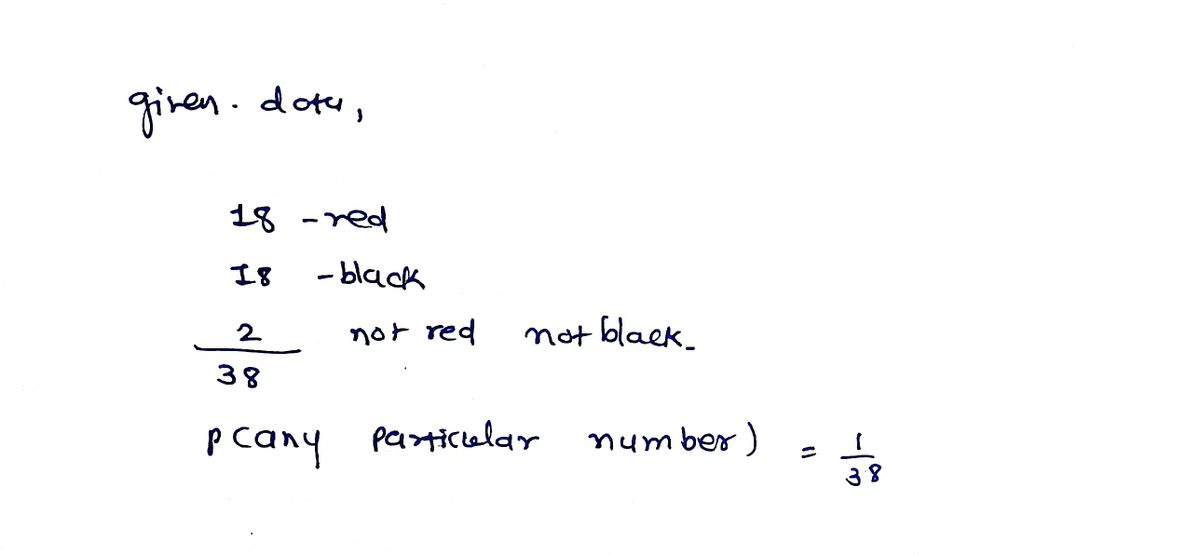 given. data,
18 - red
18 - black
2 not red not black.
38
P(any particular number) = 1/38